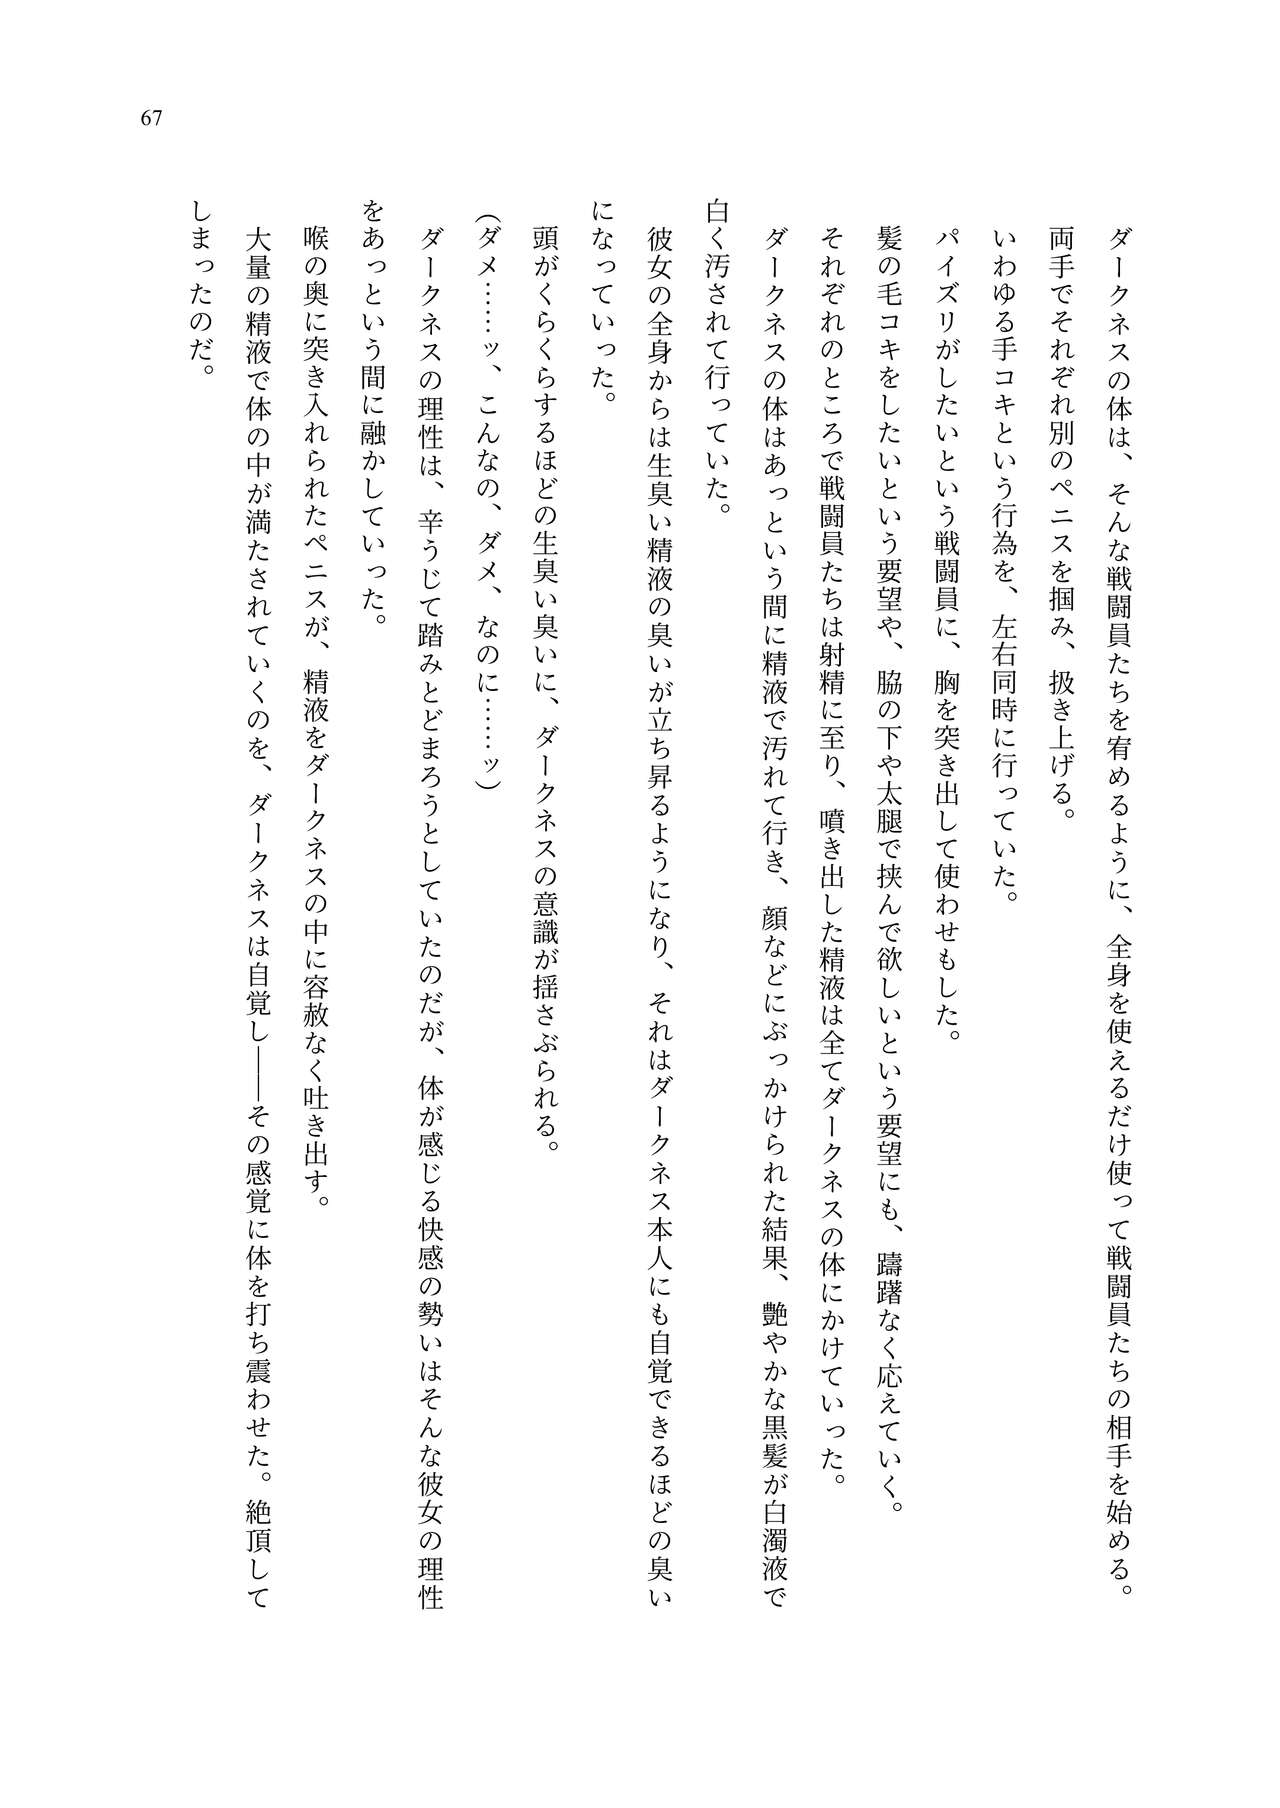 67
ダークネスの体は、そんな戦闘員たちを宥めるように、全身を使えるだけ使って戦闘員たちの相手を始める。
両手でそれぞれ別のペニスを掴み、扱き上げる。
いわゆる手コキという行為を、左右同時に行っていた。
パイズリがしたいという戦闘員に、胸を突き出して使わせもした。
髪の毛コキをしたいという要望や、脇の下や太腿で挟んで欲しいという要望にも、躊躇なく応えていく。
それぞれのところで戦闘員たちは射精に至り、噴き出した精液は全てダークネスの体にかけていった。
ダークネスの体はあっという間に精液で汚れて行き、顔などにぶっかけられた結果、艶やかな黒髪が白濁液で
白く汚されて行っていた。
彼女の全身からは生臭い精液の臭いが立ち昇るようになり、それはダークネス本人にも自覚できるほどの臭い
になっていった。
頭がくらくらするほどの生臭い臭いに、ダークネスの意識が揺さぶられる。
（ダメ……ッ、こんなの、ダメ、なのに……ッ）
ダークネスの理性は、辛うじて踏みとどまろうとしていたのだが、体が感じる快感の勢いはそんな彼女の理性
をあっという間に融かしていった。
喉の奥に突き入れられたペニスが、精液をダークネスの中に容赦なく吐き出す。
大量の精液で体の中が満たされていくのを、ダークネスは自覚し――その感覚に体を打ち震わせた。絶頂して
しまったのだ。